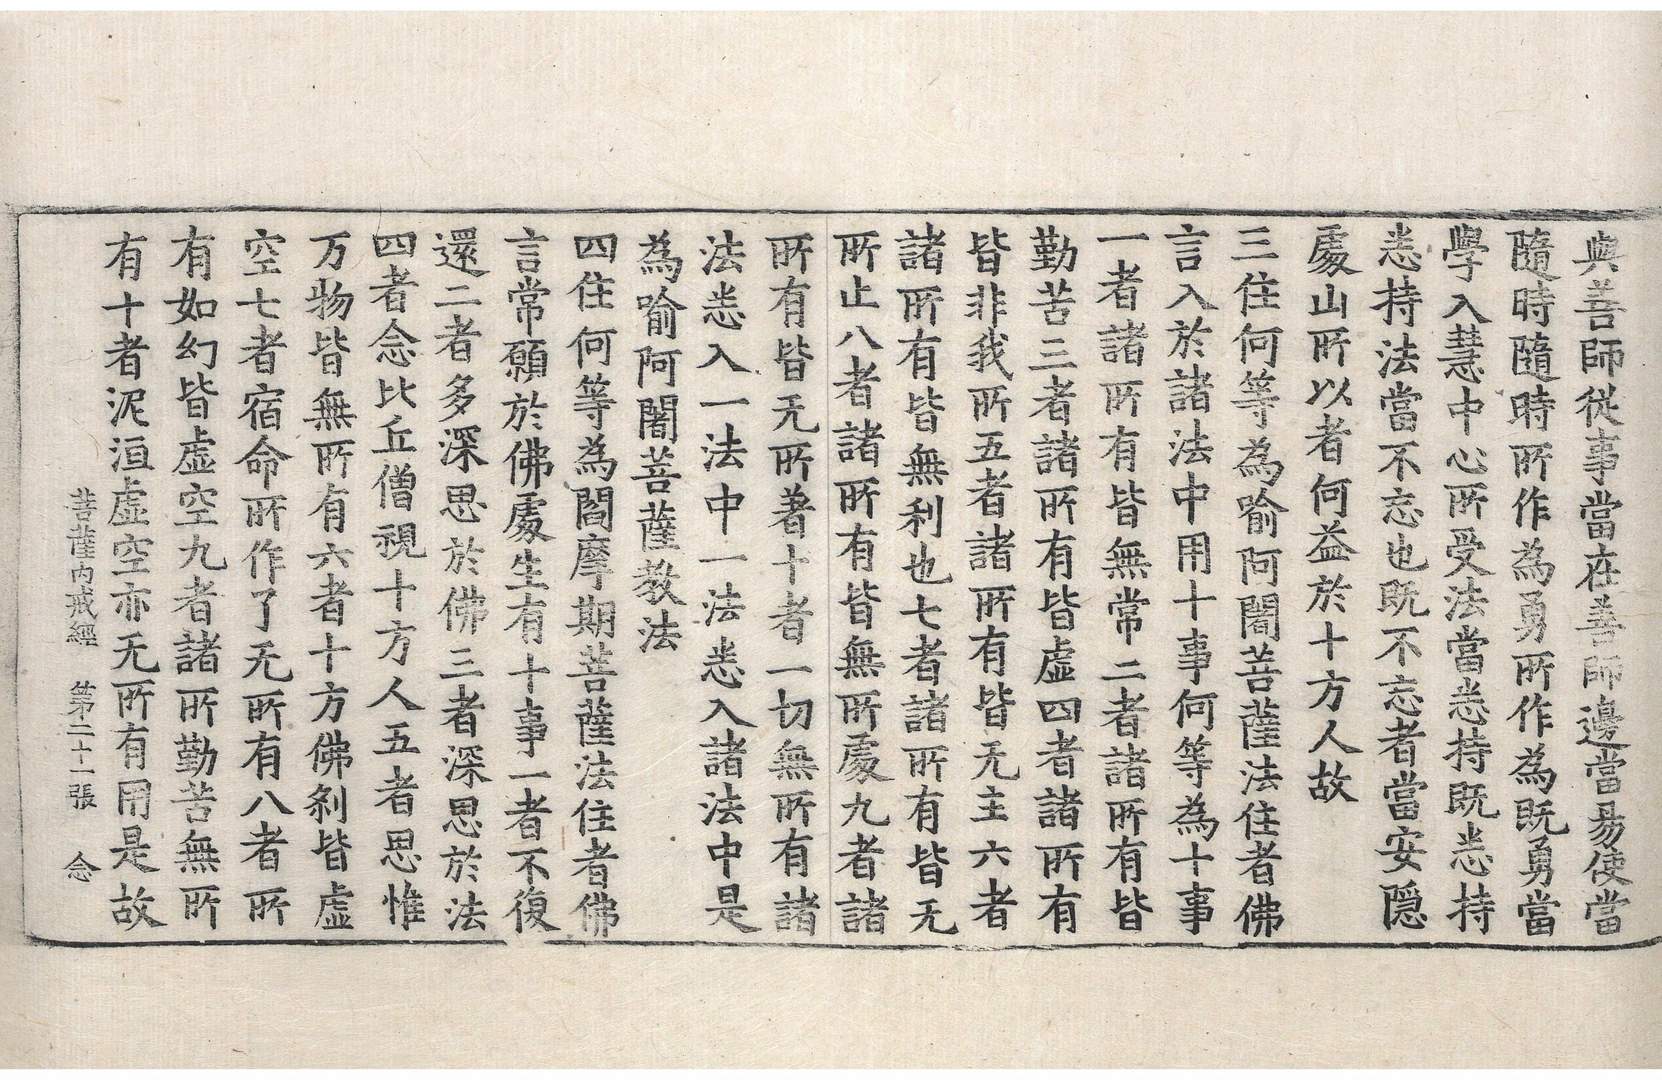 與善師從事當在善師邊當易使當
隨時隨時所作為勇所作為既勇當
學入慧中心所受法當悉持既悉持
悉持法當不忘也既不忘者當安隱
處山所以者何益於十方人故
三住何等為喻阿闍菩薩法住者佛
言入於諸法中用十事何等為十事
一者諸所有皆無常二者諸所有皆
勤苦三者諸所有皆虛四者諸所有
皆非我所五者諸所有皆无主六者
諸所有皆無利也七者諸所有皆无
所止八者諸所有皆無所處九者諸
所有皆无所著十者一切無所有諸
法悉入一法中一法悉入諸法中是
為喻阿闍菩薩教法
四住何等為閻摩期菩薩法住者佛
言常願於佛處生有十事一者不復
還二者多深思於佛三者深思於法
四者念比丘僧視十方人五者思惟
万物皆無所有六者十方佛剎皆虛
空七者宿命所作了无所有八者所
有如幻皆虛空九者諸所勤苦無所
有十者泥洹虛空亦无所有用是故
菩薩內戒經　第二十一張　念